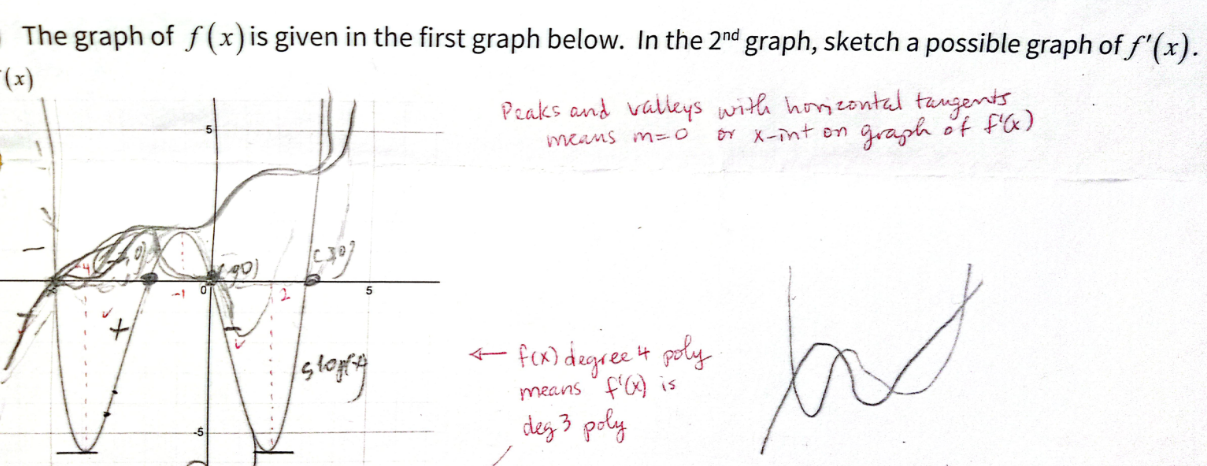 The graph of f(x) is given in the first graph below. In the 2nd graph, sketch a possible graph of f'(x).
(x)
Peaks and valleys with horizontal tangents
means m=0 or x-int on graph of f'(x)
5
-4
-1
0
2
5
+
← f(x) degree 4 poly
means f'(x) is
deg 3 poly
-5